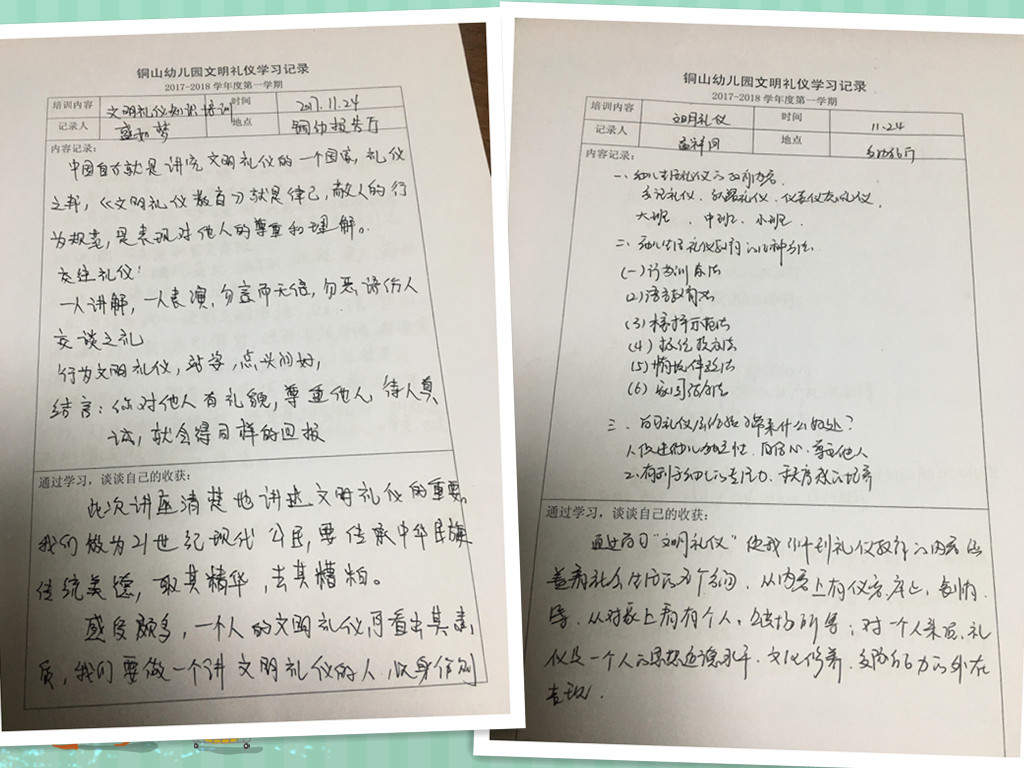 铜山幼儿园文明礼仪学习记录
2017-2018 学年度第一学期
培训内容 文明礼仪知识培训 时间 2017.11.24
记录人 地点 铜幼报告厅
内容记录:
中国自古就是讲究文明礼仪的一个国家,礼仪
之邦,《文明礼仪教育》就是律己,敬人的行
为规范,是表现对他人的尊重和理解。
交往礼仪:
一人讲解,一人表演,勿言而无信,勿恶语伤人
交谈之礼
行为文明礼仪,站姿,点头问好,
结言:你对他人有礼貌,尊重他人,待人真
诚,就会得同样的回报
通过学习,谈谈自己的收获:
此次讲座清楚地讲述文明礼仪的重要,
我们做为21世纪现代公民,要传承中华民族
传统美德,取其精华,去其糟粕。
感受颇多,一个人的文明礼仪,可看出其素
质,我们要做一个讲文明礼仪的人,以身作则
铜山幼儿园文明礼仪学习记录
2017-2018 学年度第一学期
培训内容 文明礼仪 时间 11.24
记录人 地点 多功能厅
内容记录:
一、幼儿生活礼仪的教育内容
礼仪、礼仪、仪容仪表礼仪,
大班、中班、小班
二、幼儿生活礼仪教育的几种方法
(一)行为训练法
(2)语言教育法
(3)榜样示范法
(4)法
(5)情景体验法
(6)家园结合法
三、学习礼仪后给幼儿带来什么好处?
1.促进幼儿的自信心、尊重他人
2.有利于幼儿的专注力、秩序感的培养
通过学习,谈谈自己的收获:
通过学习“文明礼仪”使我了解到礼仪教育的内容涵
盖着社会生活的各个方面,从内容上有仪容、举止、表情、
等,从对象上看有个人、公共场所等;对一个人来说,礼
仪是一个人的思想道德水平、文化修养、交际能力的外在
表现.